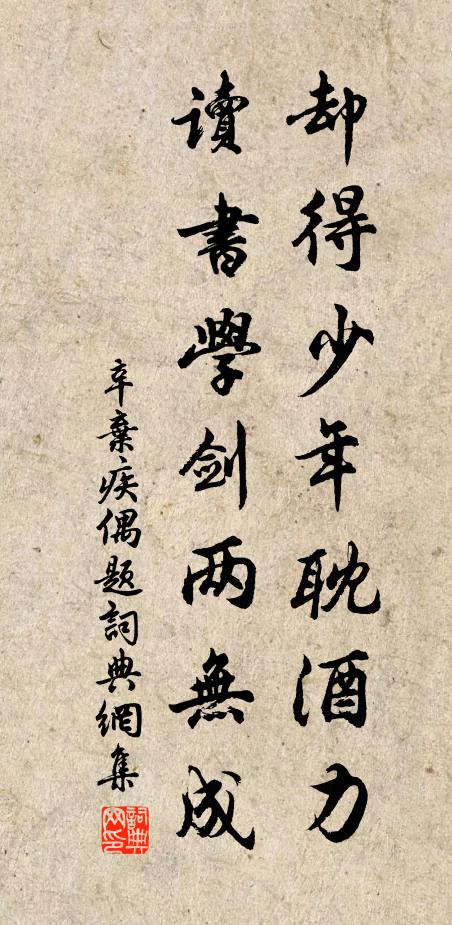 却得少年耽酒力
讀書學劍两無成
辛棄疾偶題詞典網集
詞典网印